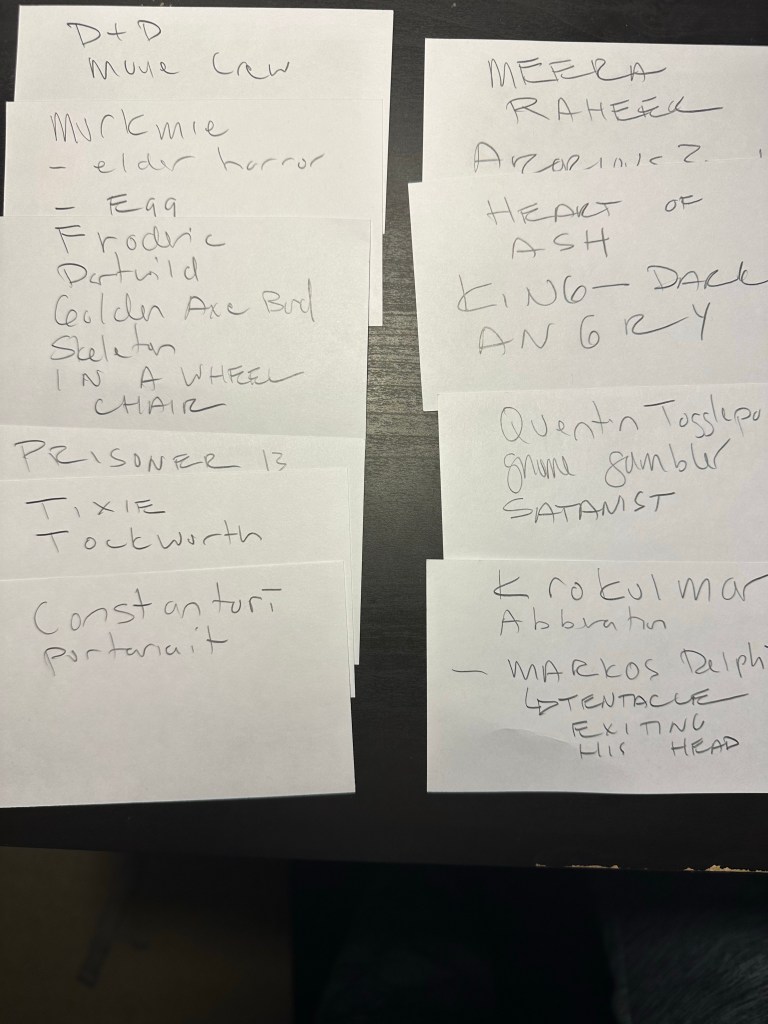 D+D
Movie Crew
Murkmie
- elder horror
- Egg
Frodric
Dartwild
Golden Axe Bird
Skeleton
IN A WHEEL
CHAIR
PRISONER 13
TIXIE
Tockworth
Constantori
portariait
MEERA
RAHEEL
HEART OF
ASH
KING- DARK
ANGRY
Quentin Togglepo
gnome gambler
SATANIST
Krokulmar
Abbratin
- MARKOS Delphi
↳TENTACLE
EXITING
HIS HEAD